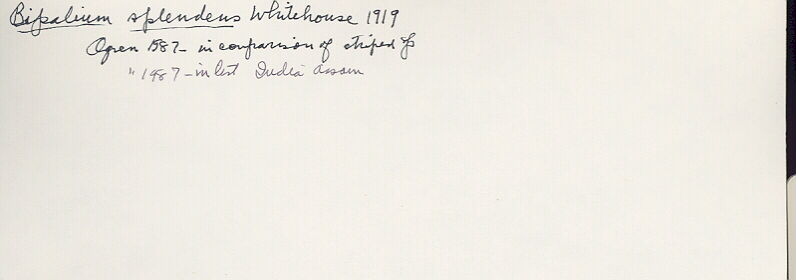 Bipalium splendens Whitehouse 1919
Ogren 1987 - in comparison of striped sp
" 1987 - in list India Assam